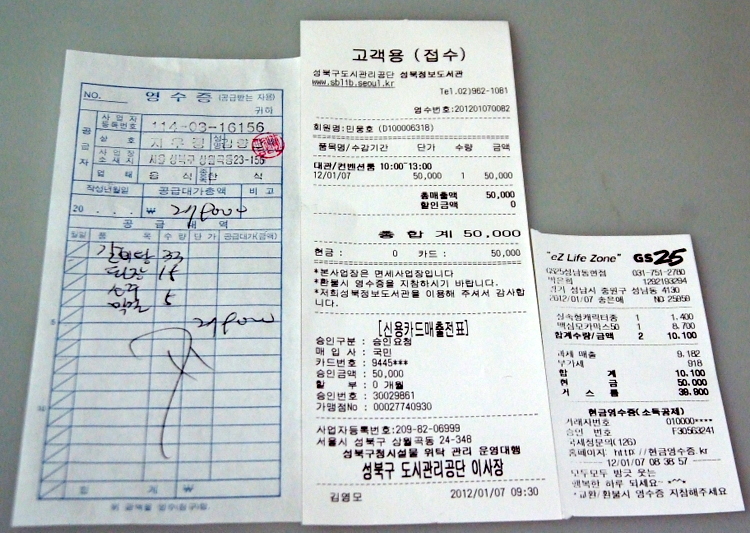 NO.
영수증 (공급받는 자용)
귀하
공급자
사업자등록번호 114-03-16156
상호
성명
사업장소재지 서울 성북구 상월곡동23-156
업태 음식 종목 한식
작성년월일 공급대가총액 비고
20 . . . ₩
공급내역
월일 품목 수량 단가 공급대가(금액)
된장 15
소주
합계 ₩
위 금액을 영수(청구)함.
고객용 (접수)
성북구도시관리공단 성북정보도서관
www.sblib.seoul.kr
Tel.02)962-1081
영수번호:201201070082
회원명:민웅호 (D100006318)
품목명/수강기간 단가 수량 금액
대관/컨벤션룸 10:00~13:00
12/01/07 50,000 1 50,000
총매출액 50,000
할인금액 0
총 합 계 50,000
현금 : 0 카드 : 50,000
*본사업장은 면세사업장입니다
*환불시 영수증을 지참하시기 바랍니다.
*저희성북정보도서관을 이용해 주셔서 감사합니다.
[신용카드매출전표]
승인구분 : 승인요청
매 입 사 : 국민
카드번호 : 9445***
승인금액 : 50,000
할 부 : 0 개월
승인번호 : 30029861
가맹점No : 00027740930
사업자등록번호:209-82-06999
서울시 성북구 상월곡동 24-348
성북구청시설물 위탁 관리 운영대행
성북구 도시관리공단 이사장
김영모 2012/01/07 09:30
"eZ Life Zone" GS25
GS25성남동현점 031-751-2780
박은희 1292193294
경기 성남시 중원구 성남동 4130
2012/01/07 송은애 NO 25858
맥심모카믹스50 1 8,700
1 1,400
합계수량/금액 2 10,100
과세 매출 9,182
부가세 918
합 계 10,100
현 금 50,000
거 스 름 39,900
현금영수증(소득공제)
거래자번호 010000****
승인 번호 F30563241
국세청문의(126)
홈페이지: http://현금영수증.kr
12/01/07 08:38:57
모두모두 방긋 웃는
행복한 하루 되세요~
*교환/환불시 영수증 지참해주세요